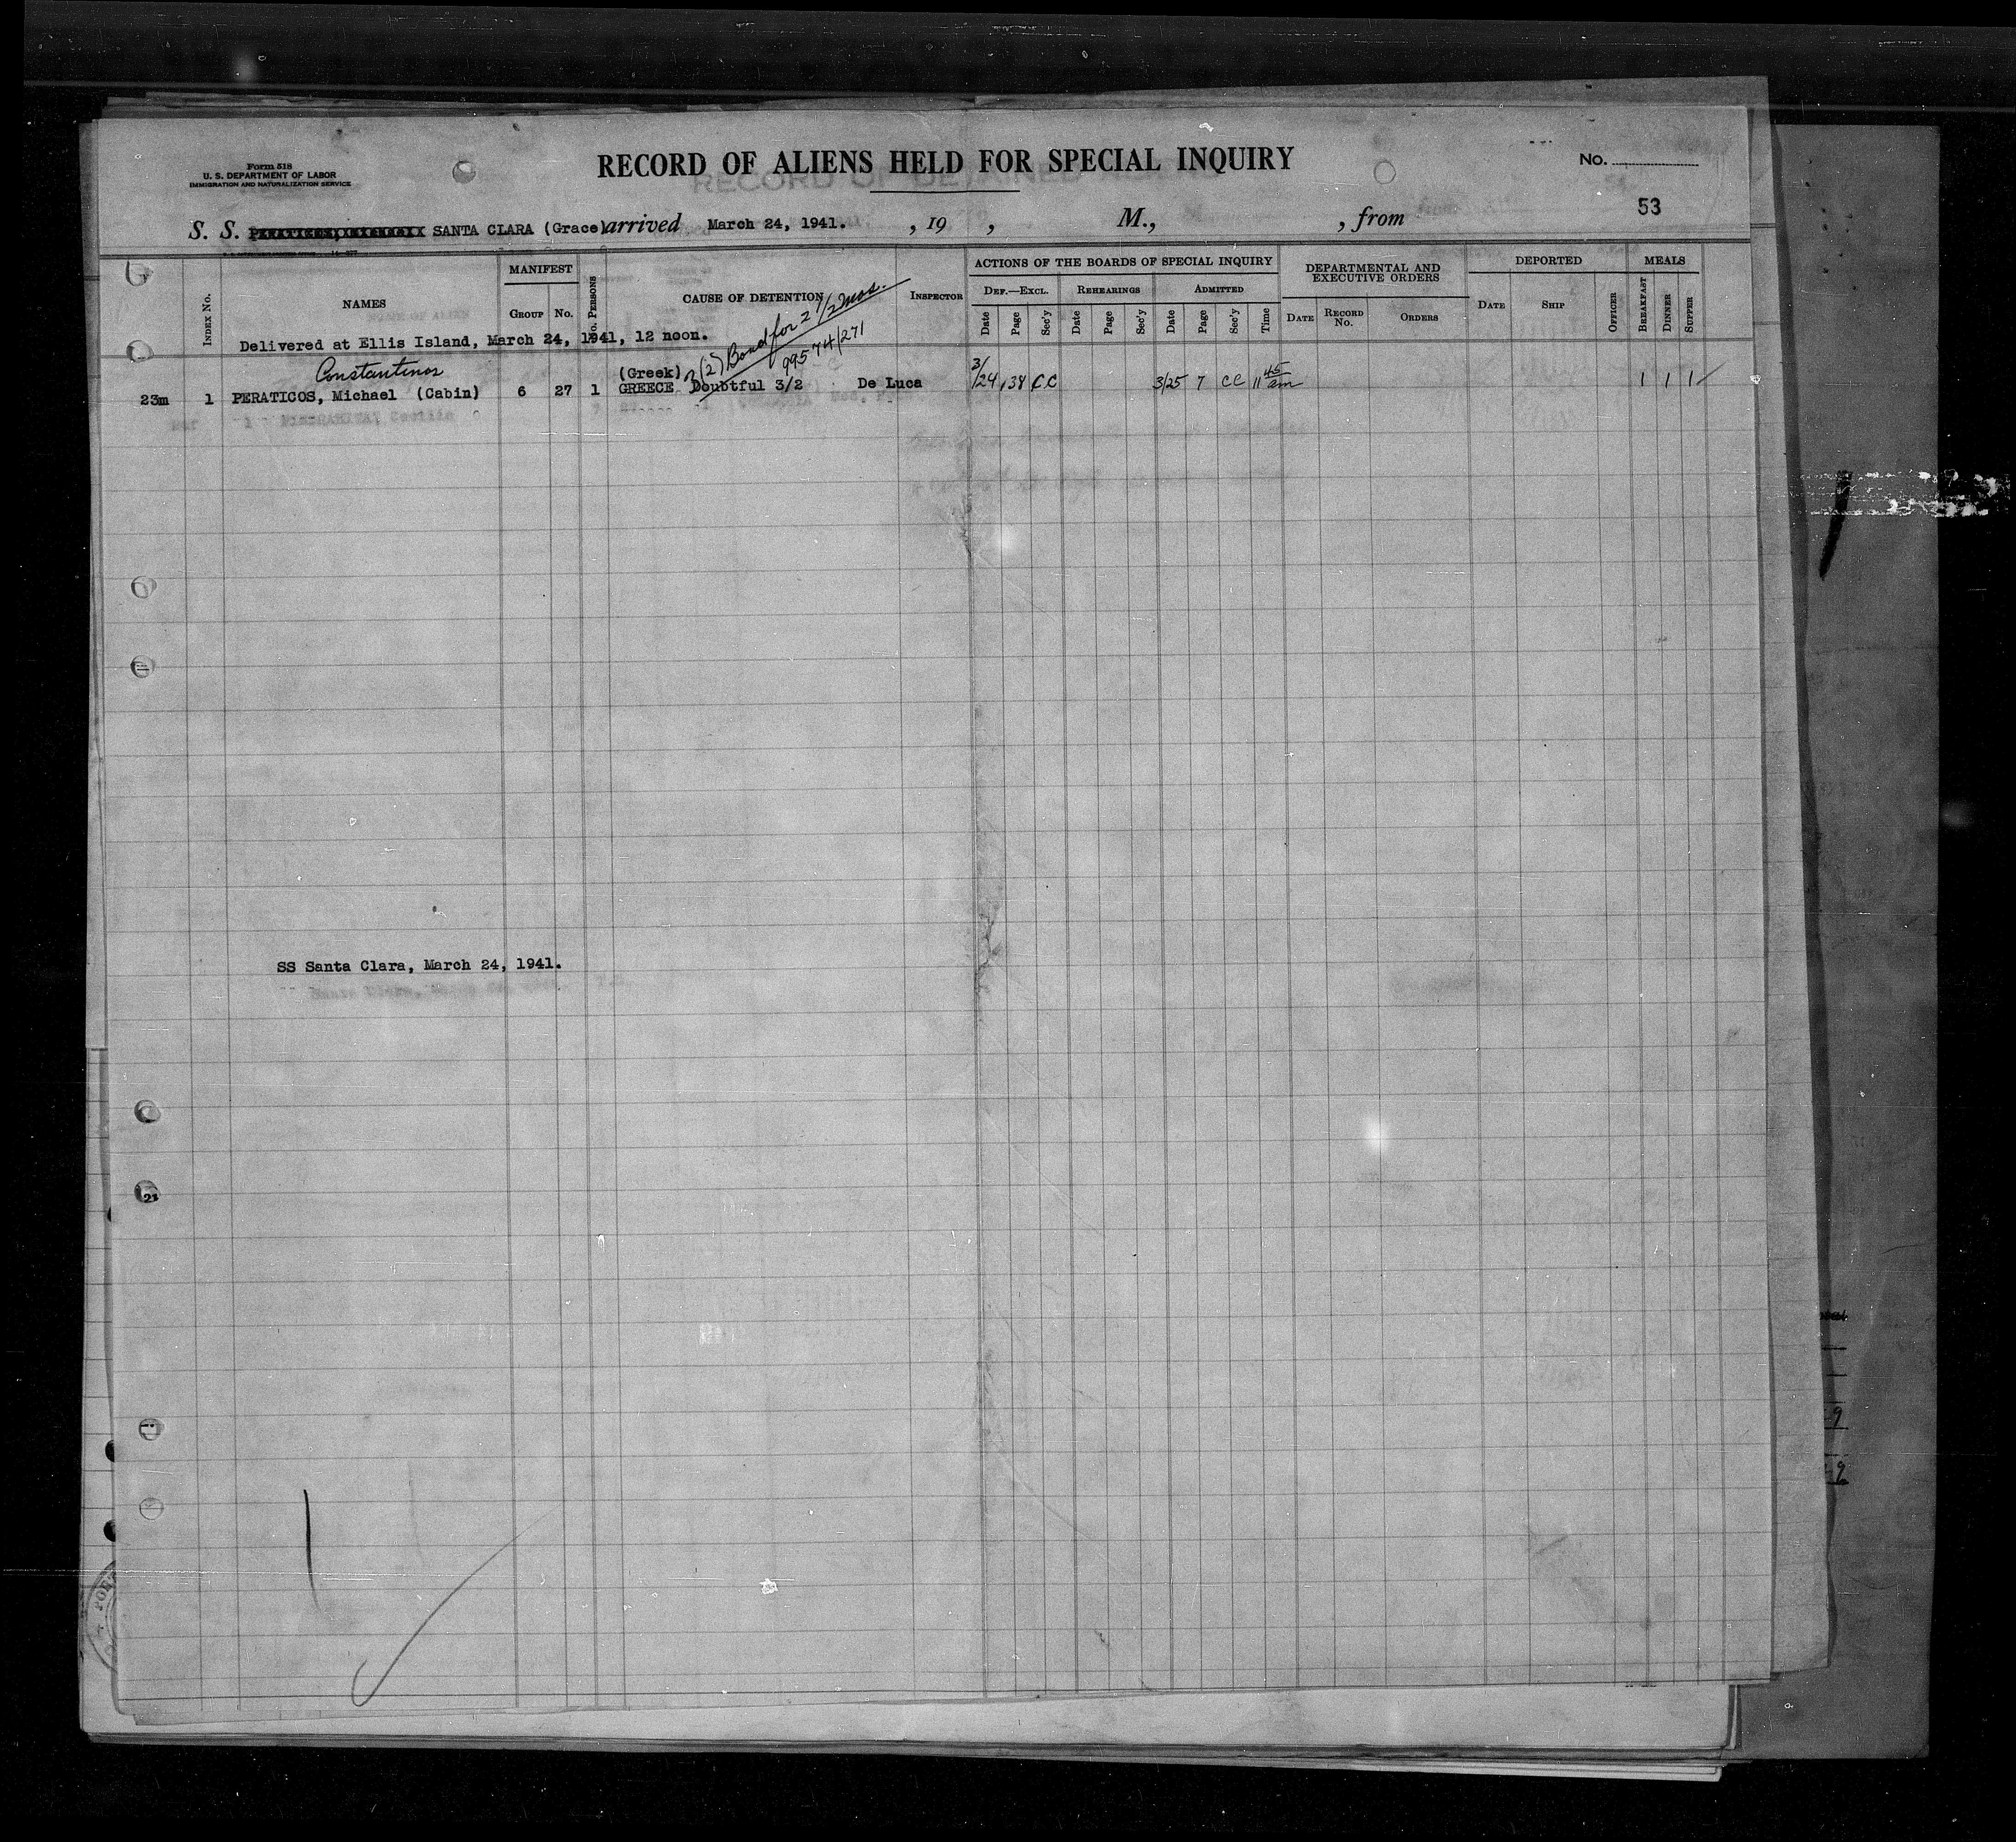 Form 518
U. S. DEPARTMENT OF LABOR
IMMIGRATION AND NATURALIZATION SERVICE
RECORD OF ALIENS HELD FOR SPECIAL INQUIRY
No.
53
S. S. SANTA CLARA (Grace) arrived March 24, 1941. , 19 , M., , from
INDEX No.
NAMES
MANIFEST
GROUP No.
No. PERSONS
CAUSE OF DETENTION
INSPECTOR
ACTIONS OF THE BOARDS OF SPECIAL INQUIRY
DEF.—EXCL. REHEARINGS ADMITTED
Date Page Sec'y Date Page Sec'y Date Page Sec'y Time
DEPARTMENTAL AND EXECUTIVE ORDERS
DATE RECORD No. ORDERS
DEPORTED
DATE SHIP OFFICER
MEALS
BREAKFAST DINNER SUPPER
Delivered at Ellis Island, March 24, 1941, 12 noon.
3(2) Bond for 2 1/2 mos.
99574/271
Constantinos
23m 1 PERATICOS, Michael (Cabin) 6 27 1 (Greek) GREECE Doubtful 3/2 De Luca 3/24 38 CC 3/25 7 CC 11 45 am 1 1 1
SS Santa Clara, March 24, 1941.